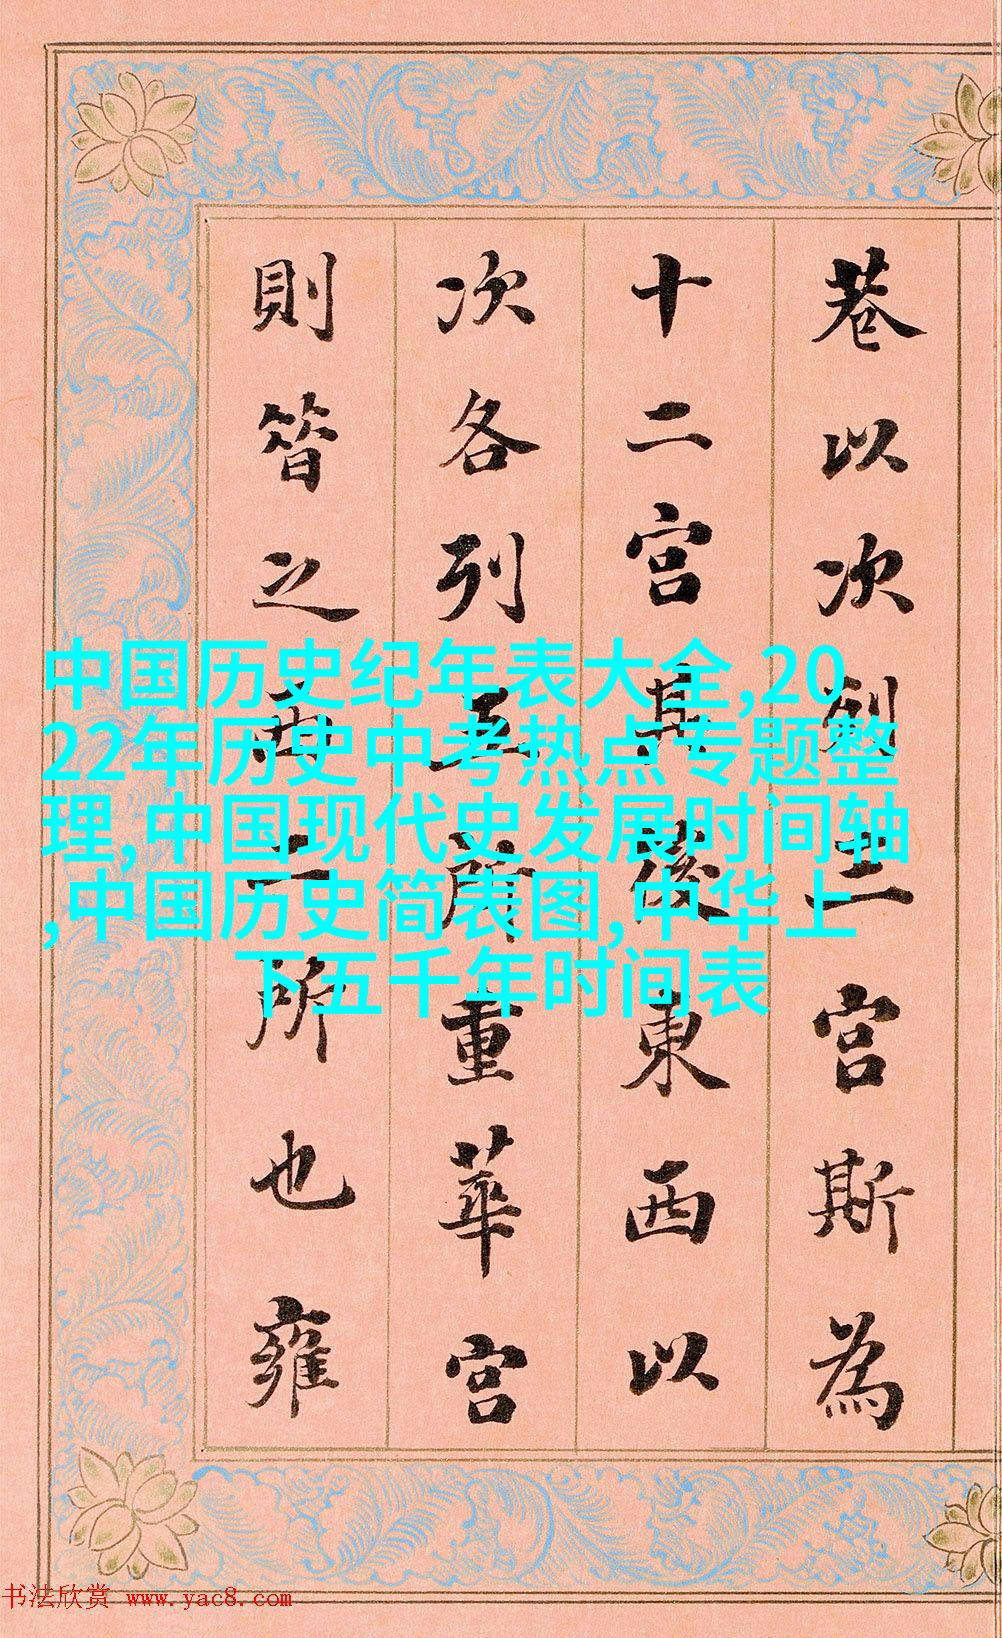 巷以次列三宮斯為
十二宮其後東西以
次各列五所重華宮
則昔之西二所也雍
中国历史纪年表大全,20
22年历史中考热点专题整
理,中国现代史发展时间轴
,中国历史简表图,中华上
下五千年时间表
书法欣赏 www.yac8.com